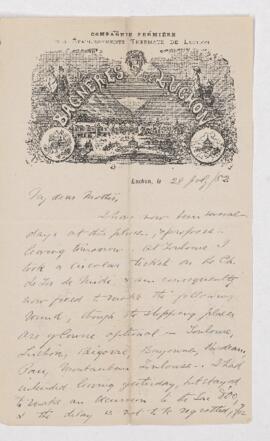 COMPAGNIE FERMIÈRE
DES ÉTABLISSEMENTS THERMAUX DE LUCHON
BAGNÈRES DE LUCHON
Luchon, le 28 July /82
My dear Mother,
I have now been several
days at this place, & propose
leaving tomorrow. At Toulouse I
took a circular ticket on the Ch.
de Fer du Midi, & am consequently
now fixed to make the following
round, though the stopping places
are of course optional — Toulouse,
Luchon, Bigorre, Bayonne,
Pau, Montauban Toulouse — I had
intended leaving yesterday, but stayed
to make an excursion to the Lac d'Oo,
& the delay is not to be regretted, for